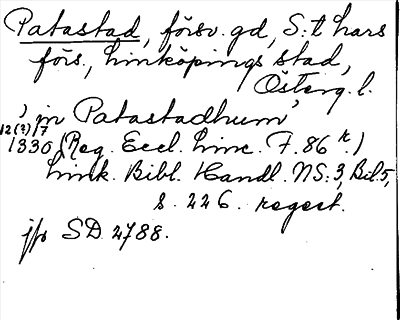 Patastad, försv. gd, S:t Lars
förs., Linköpings stad,
Österg. l.
, in Patastadhum,
12(?)/7
1330 (Reg. Eccl. Linc. F. 86 r.)
Link. Bibl. Handl. NS:3, Bil. 5,
s. 226. regest.
jfr SD 2788.